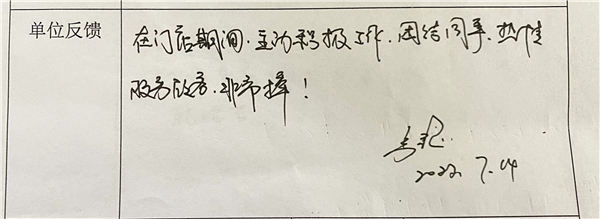 单位反馈
在门店期间，主动积极工作，团结同事，热情
服务顾客，非常棒！
2022. 7.04